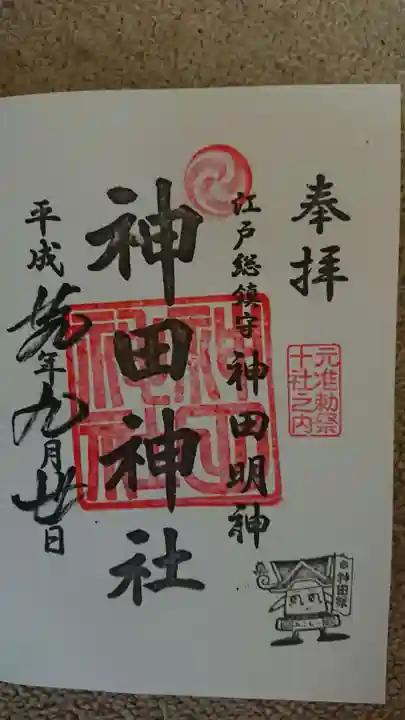 奉拝
元准勅祭
十社之内
江戸総鎮守 神田明神
神田神社
平成廿九年九月廿日
神田祭